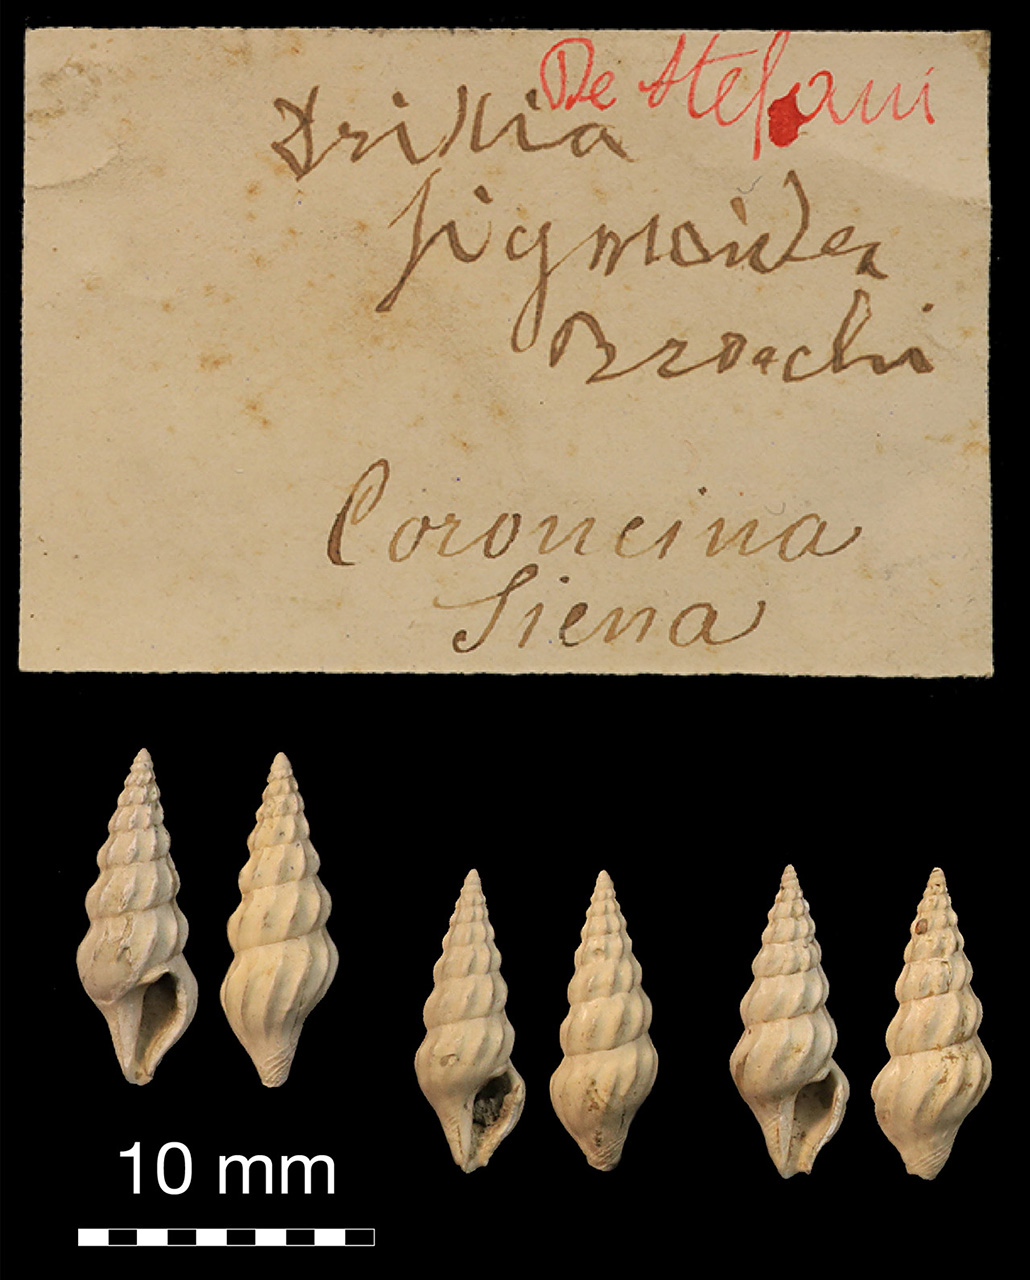 De Stefani
Drillia
sigmoidea
Brocchi
Coroncina
Siena
10 mm